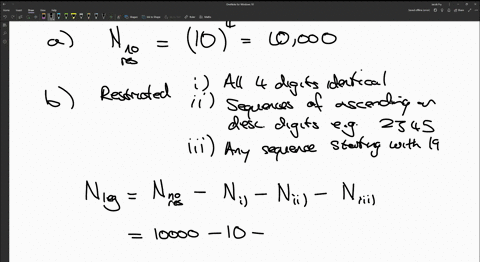 a) N no res = (10)^4 = 10,000
b) Restricted i) All 4 digits identical
ii) Sequences of ascending or
desc digits e.g. 2345
iii) Any sequence starting with 19
N leg = N no res - N i) - N ii) - N iii)
= 10000 - 10 -